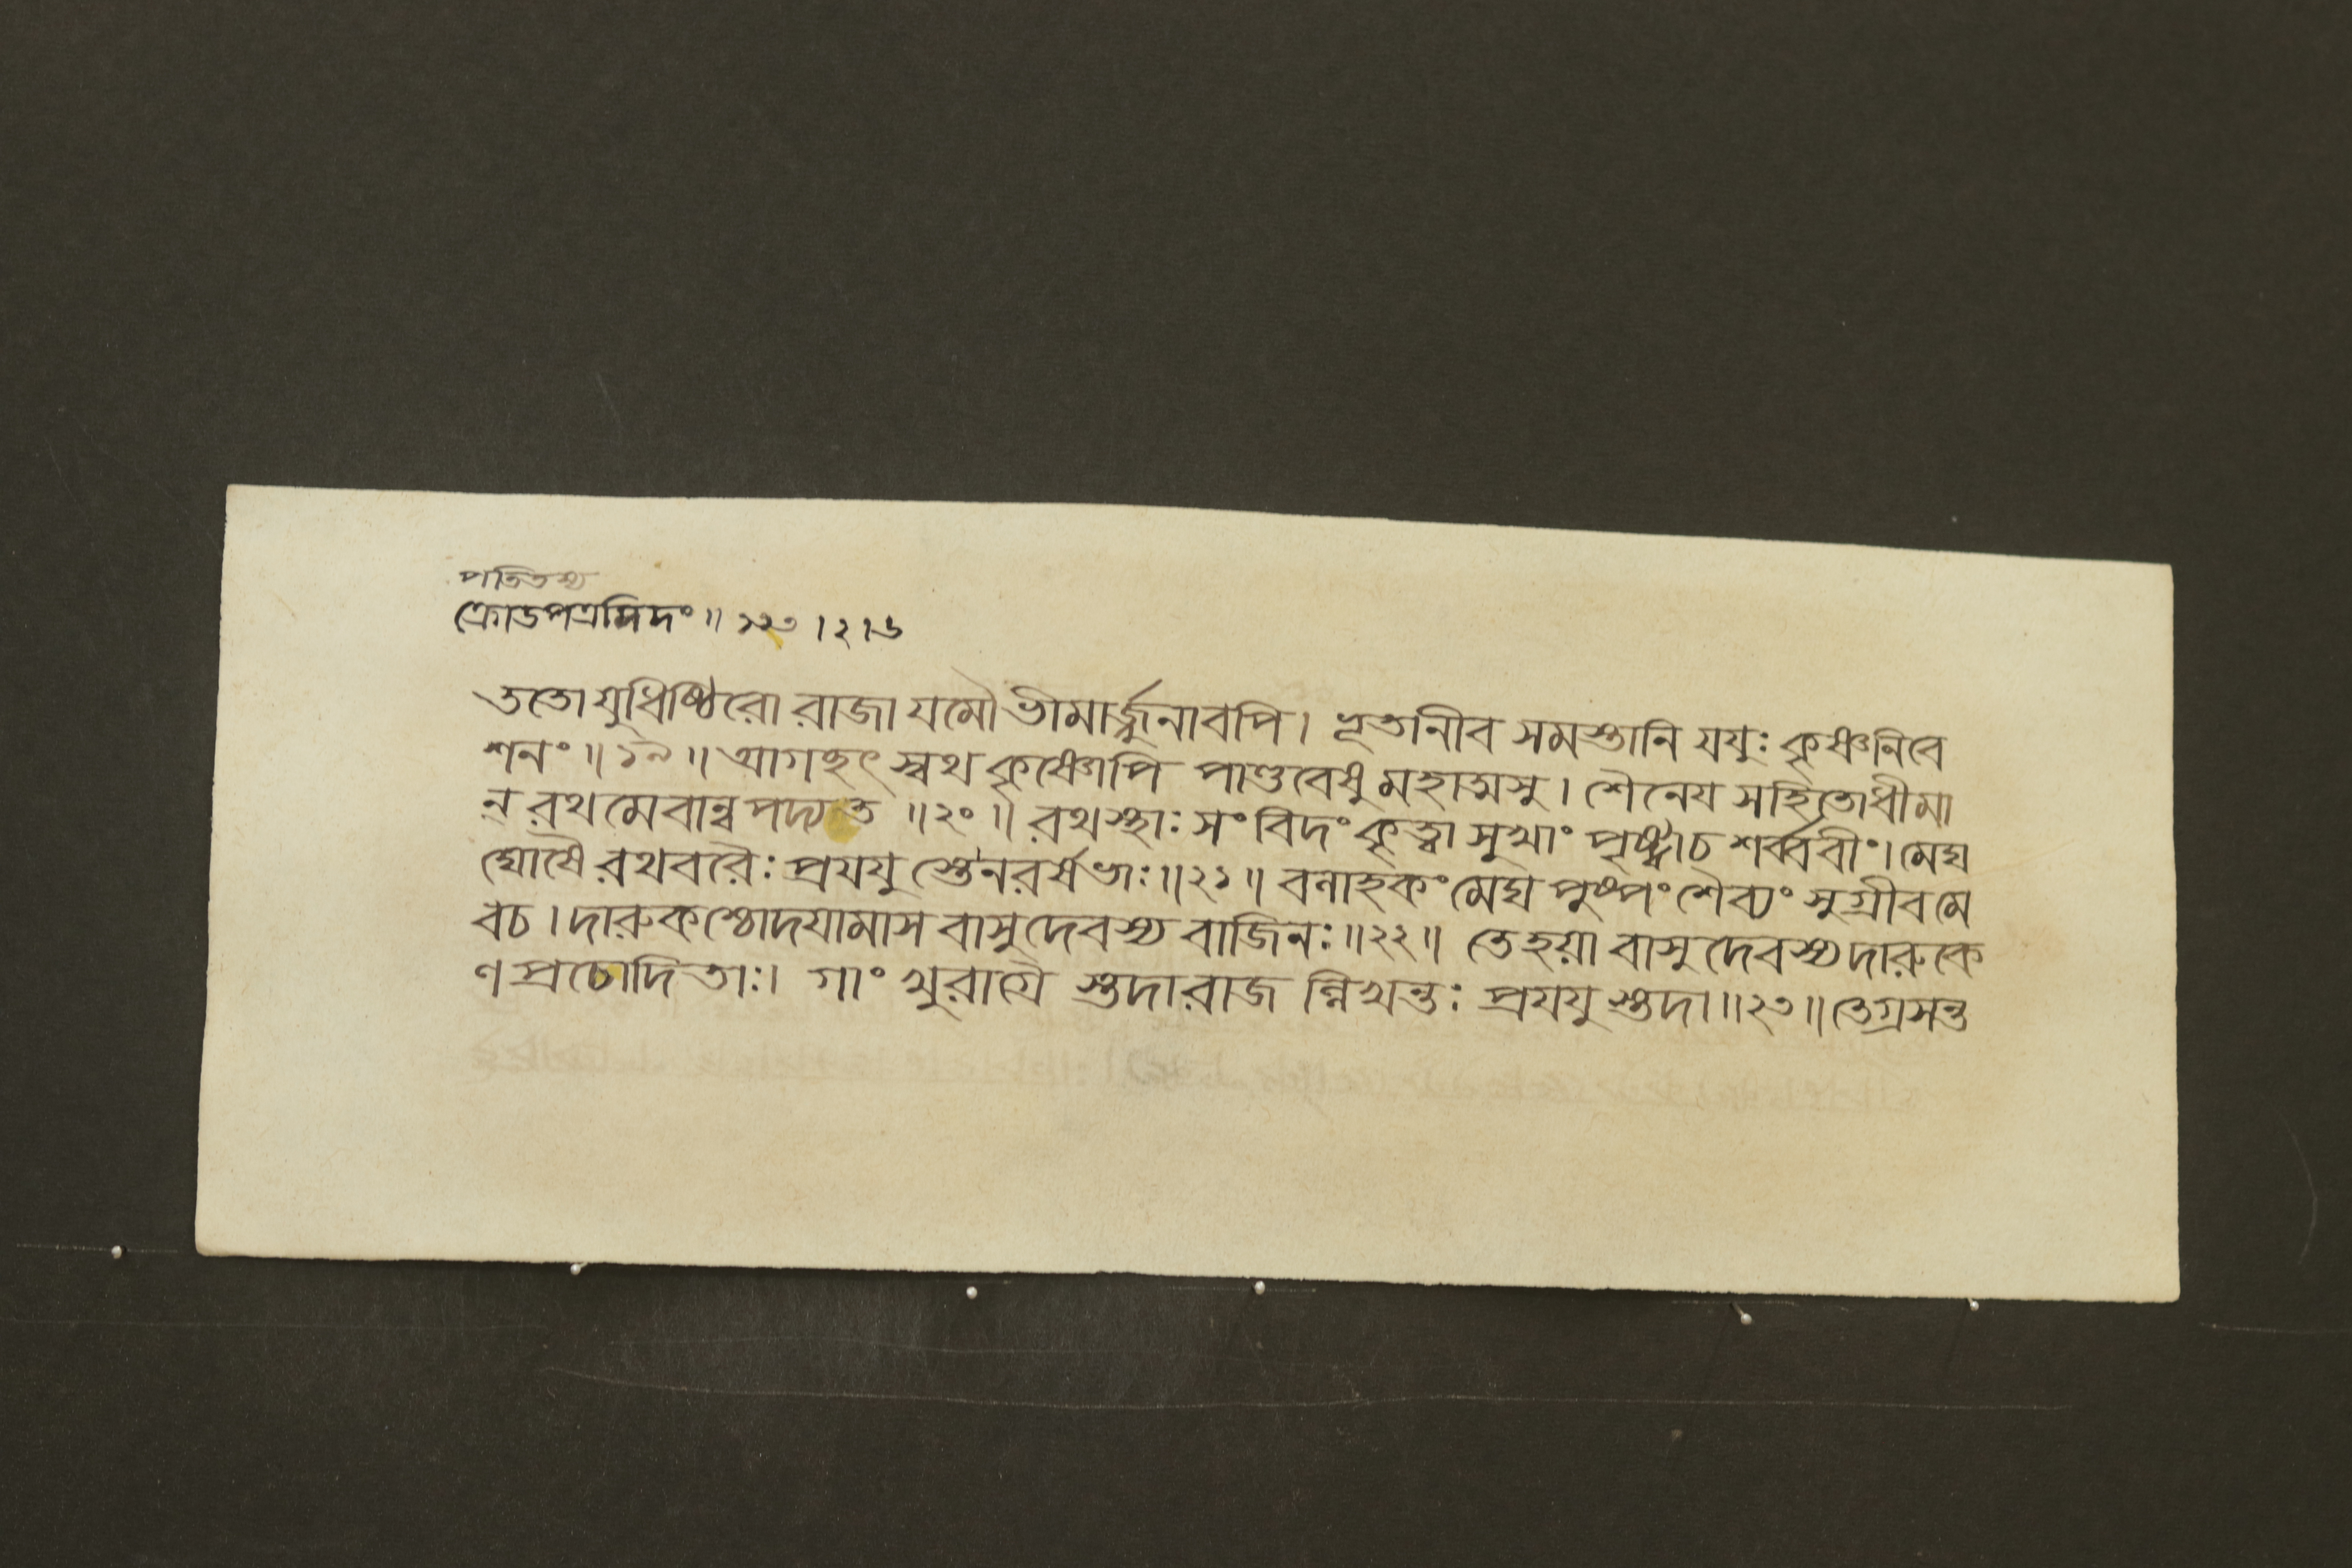 পতিতস্য
ক্রোডপত্রমিদং॥ ১২৩।২।৬
ততো যুধিষ্ঠিরো রাজা যমৌ ভীমার্জ্জুনাবপি। ভূতানীব সমস্তানি যযুঃ কৃষ্ণনিবে
শনং॥১৯॥ আগচ্ছৎ স্বথ কৃষ্ণোপি পাণ্ডবেষু মহাত্মসু। শৈনেয সহিতোধীমা
ন রথমেবান্বপদ্যত॥২০॥ রথস্থাঃ সংবিদং কৃত্বা সুখাং পৃষ্ট্বাচ শর্ব্বরীং। মেঘ
ঘোষৈ রথবরৈঃ প্রযযু স্তেনরর্ষভাঃ॥২১॥ বলাহকং মেঘপুষ্পং শৈব্যং সুগ্রীবমে
বচ। দারুকশ্চোদযামাস বাসুদেবস্য বাজিনঃ॥২২॥ তেহয়া বাসুদেবস্যদারুকে
ণ প্রচোদিতাঃ। গাং খুরাগ্রৈ স্তদারাজ ন্নিখন্তঃ প্রযযুস্তদা॥২৩॥ তেগ্রসন্ত